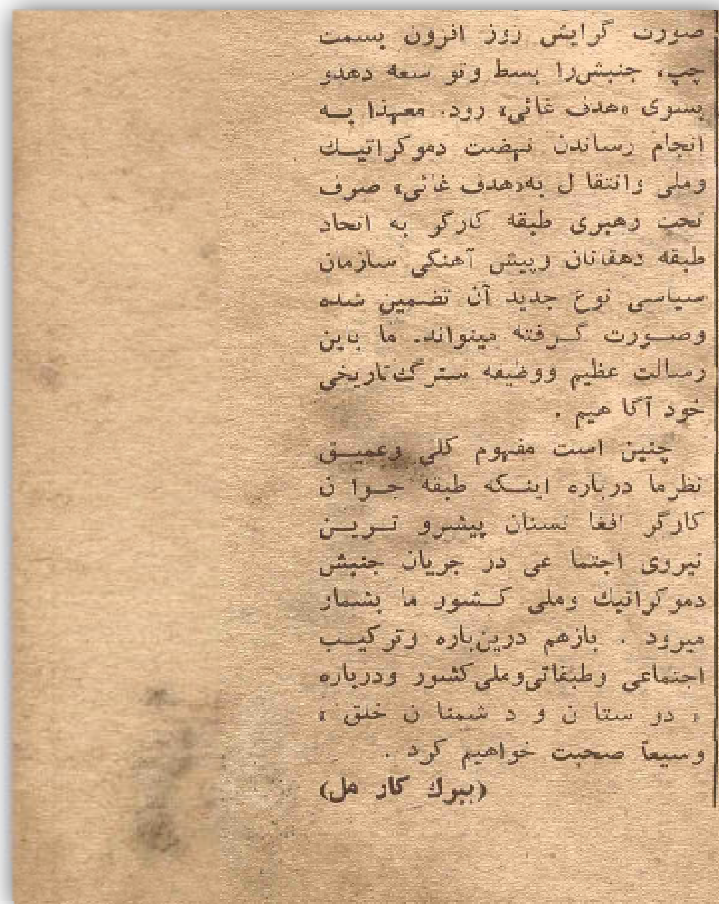 صورت گرایش روز افزون بسمت
چپ، جنبش‌را بسط وتو سعه دهدو
بسوی «هدف غائی» رود. معهذا بــه
انجام رساندن نهضت دموکراتیـك
وملی وانتقا ل به«هدف غائی» صرف
تحت رهبری طبقه کارگر به اتحاد
طبقه دهقانان وپیش آهنگی سازمان
سیاسی نوع جدید آن تضمین شده
وصــورت گــرفته میتواند. ما باین
رسالت عظیم ووظیفه سترگ تاریخی
خود آگا هیم .
چنین است مفهوم کلی وعمیــق
نظرما درباره اینــکه طبقه جــوا ن
کارگر افغا نستان پیشرو تــریــن
نیروی اجتما عی در جریان جنبش
دموکراتیك وملی کــشور ما بشمار
میرود . بازهم درین‌باره وترکیــب
اجتماعی وطبقاتی‌وملی‌کشور ودرباره
« دو ستا ن و د شمنا ن خلق »
وسیعاً صحبت خواهیم کرد .
(ببرك کار مل)